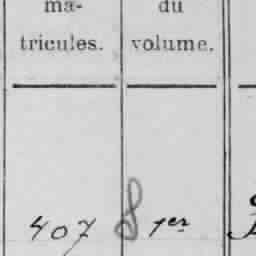 ma-
tricules.
du
volume.
407
8
1er